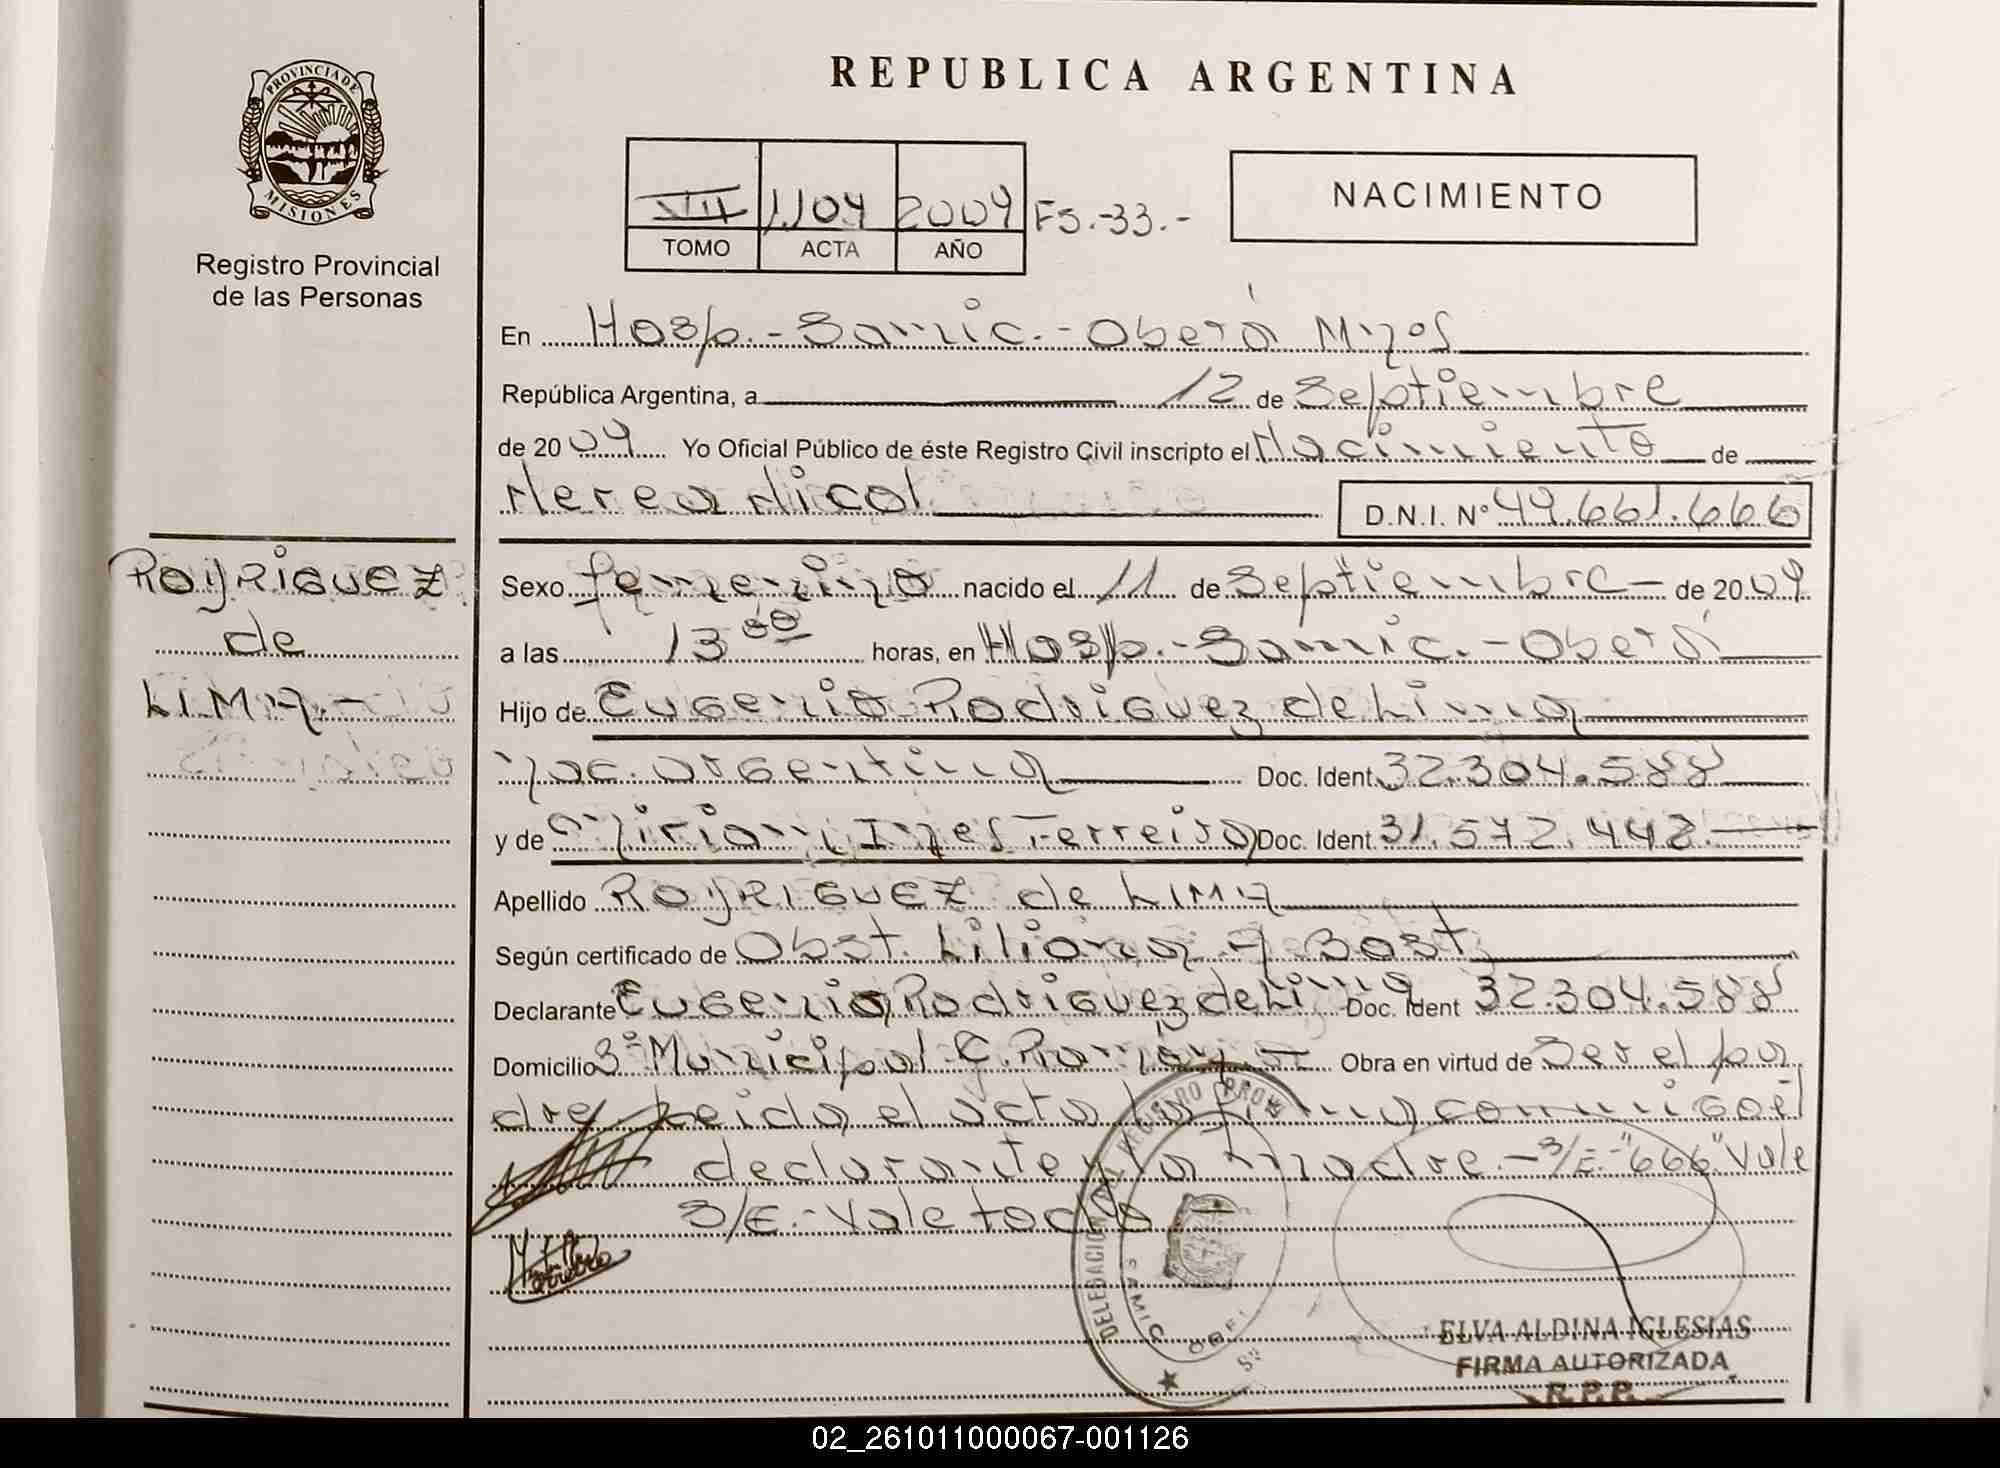 PROVINCIA DE
MISIONES
Registro Provincial
de las Personas
RODRIGUEZ
de
LIMA.-
REPUBLICA ARGENTINA
VII 1.104 2009 FS.-33.-
TOMO ACTA AÑO
NACIMIENTO
En Hosp.-Samic.-Oberá Mnes
República Argentina, a 12 de Septiembre
de 2009 Yo Oficial Público de éste Registro Civil inscripto el Nacimiento de
Nerea Nicol D.N.I. N° 49.661.666
Sexo femenino nacido el 11 de Septiembre de 2009
a las 13 00 horas, en Hosp.-Samic.-Oberá
Hijo de Eugenio Rodriguez de Lima
nac. argentina Doc. Ident. 32.304.588
y de Miriam Ines Ferreira Doc. Ident. 31.572.442.
Apellido RODRIGUEZ de LIMA
Según certificado de Obst. Liliana A Bast
Declarante Eugenio Rodriguez de Lima Doc. Ident 32.304.588
Domicilio 3° Municipal C. Ramón Obra en virtud de Ser el pa
dre Leida el acta la firma conmigo el
declarante y la madre.-S/E.-"666" Vale
S/E.-Vale todo
DELEGACION DEL REGISTRO PROV
SAMIC OBE
ELVA ALDINA IGLESIAS
FIRMA AUTORIZADA
R.P.P.
02_261011000067-001126